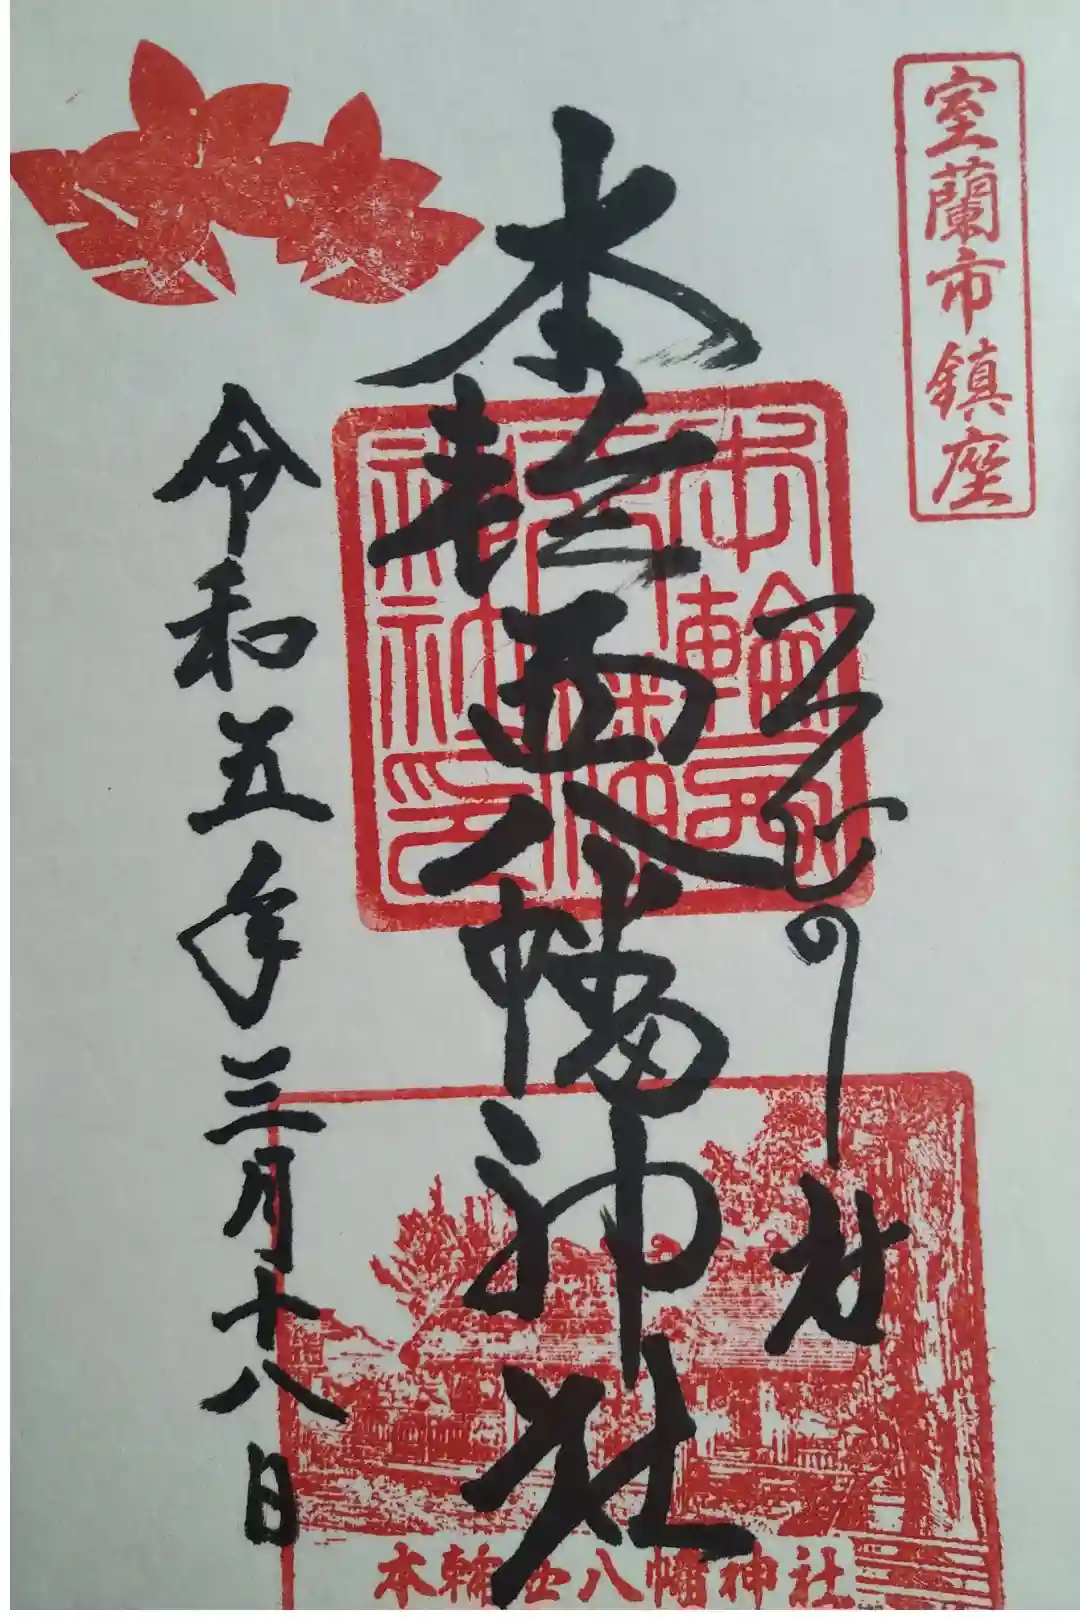 室蘭市鎮座
本輪西八幡神社
本輪西
八幡
神社印
令和五年三月十八日
本輪西八幡神社